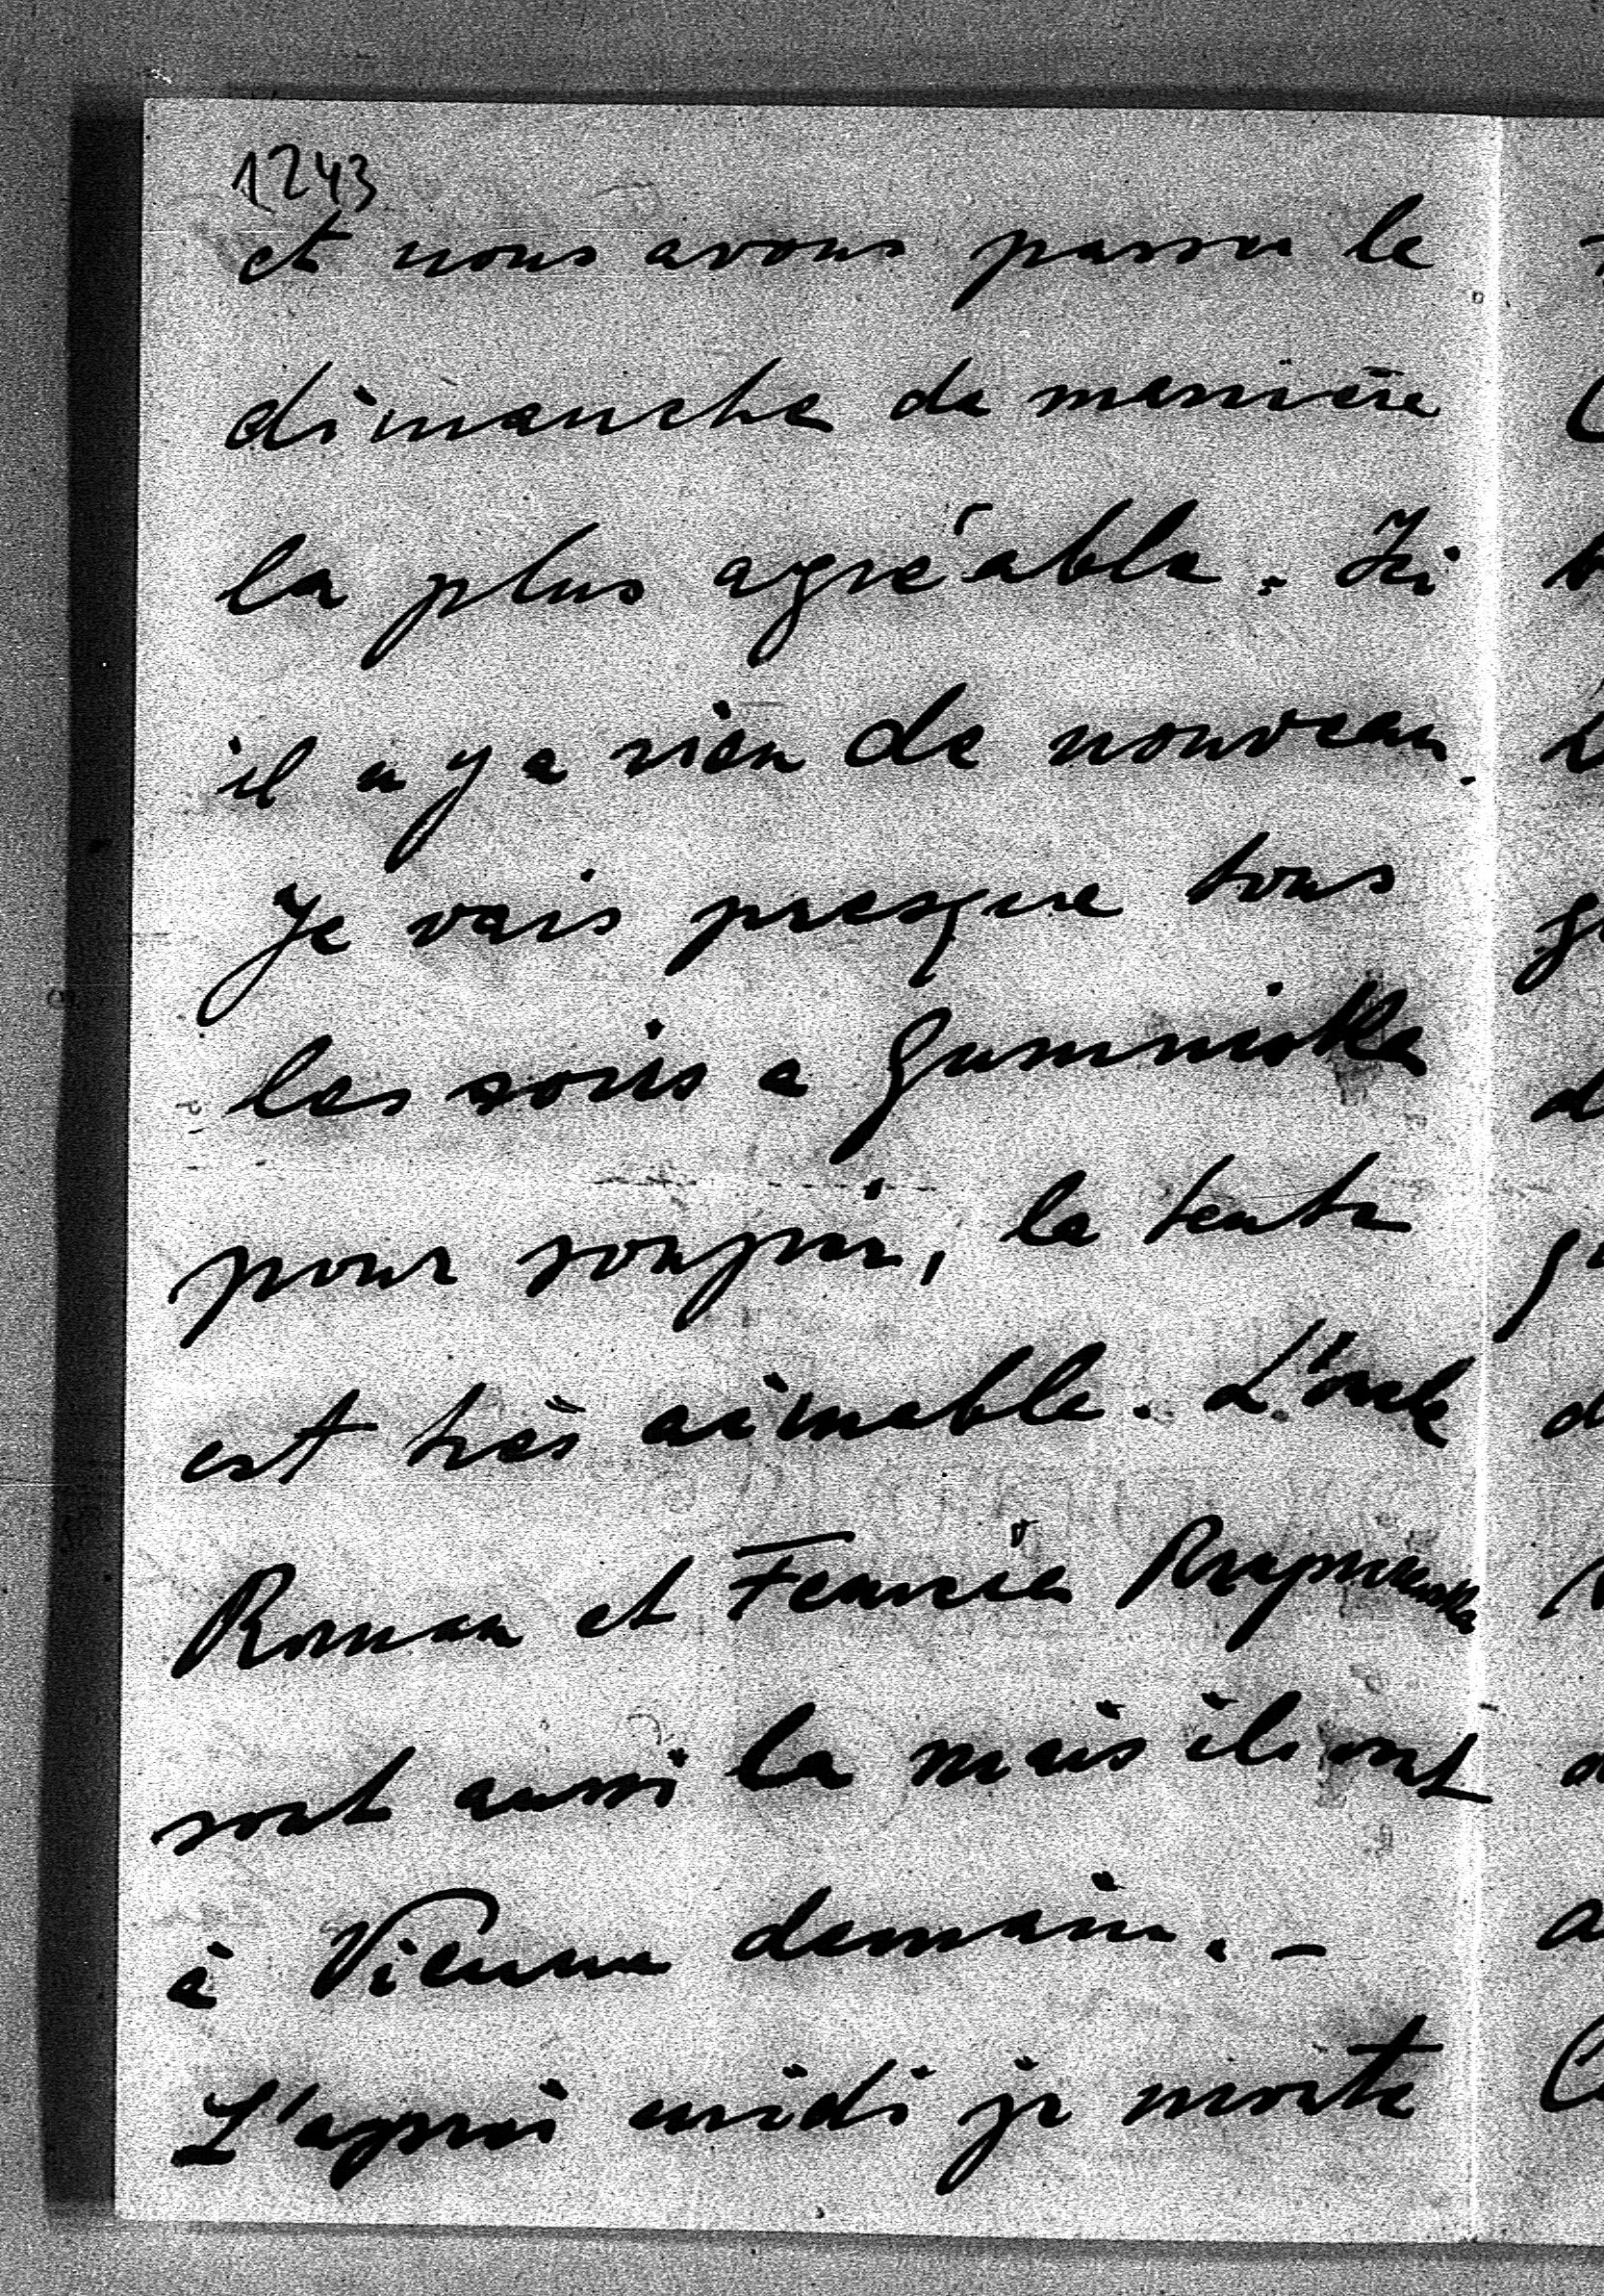 1243
et nous avons passer le
dimanche de manière
la plus agréable. Ici
il n y a rien de nouveau.
Je vais presque tous
les soirs a Gumniska
pour souper, la tente
est très aimable. L'oncle
Roman et Fenicia
sont aussi la mais ils vont
à Vienne demain. –
L'après midi je monte